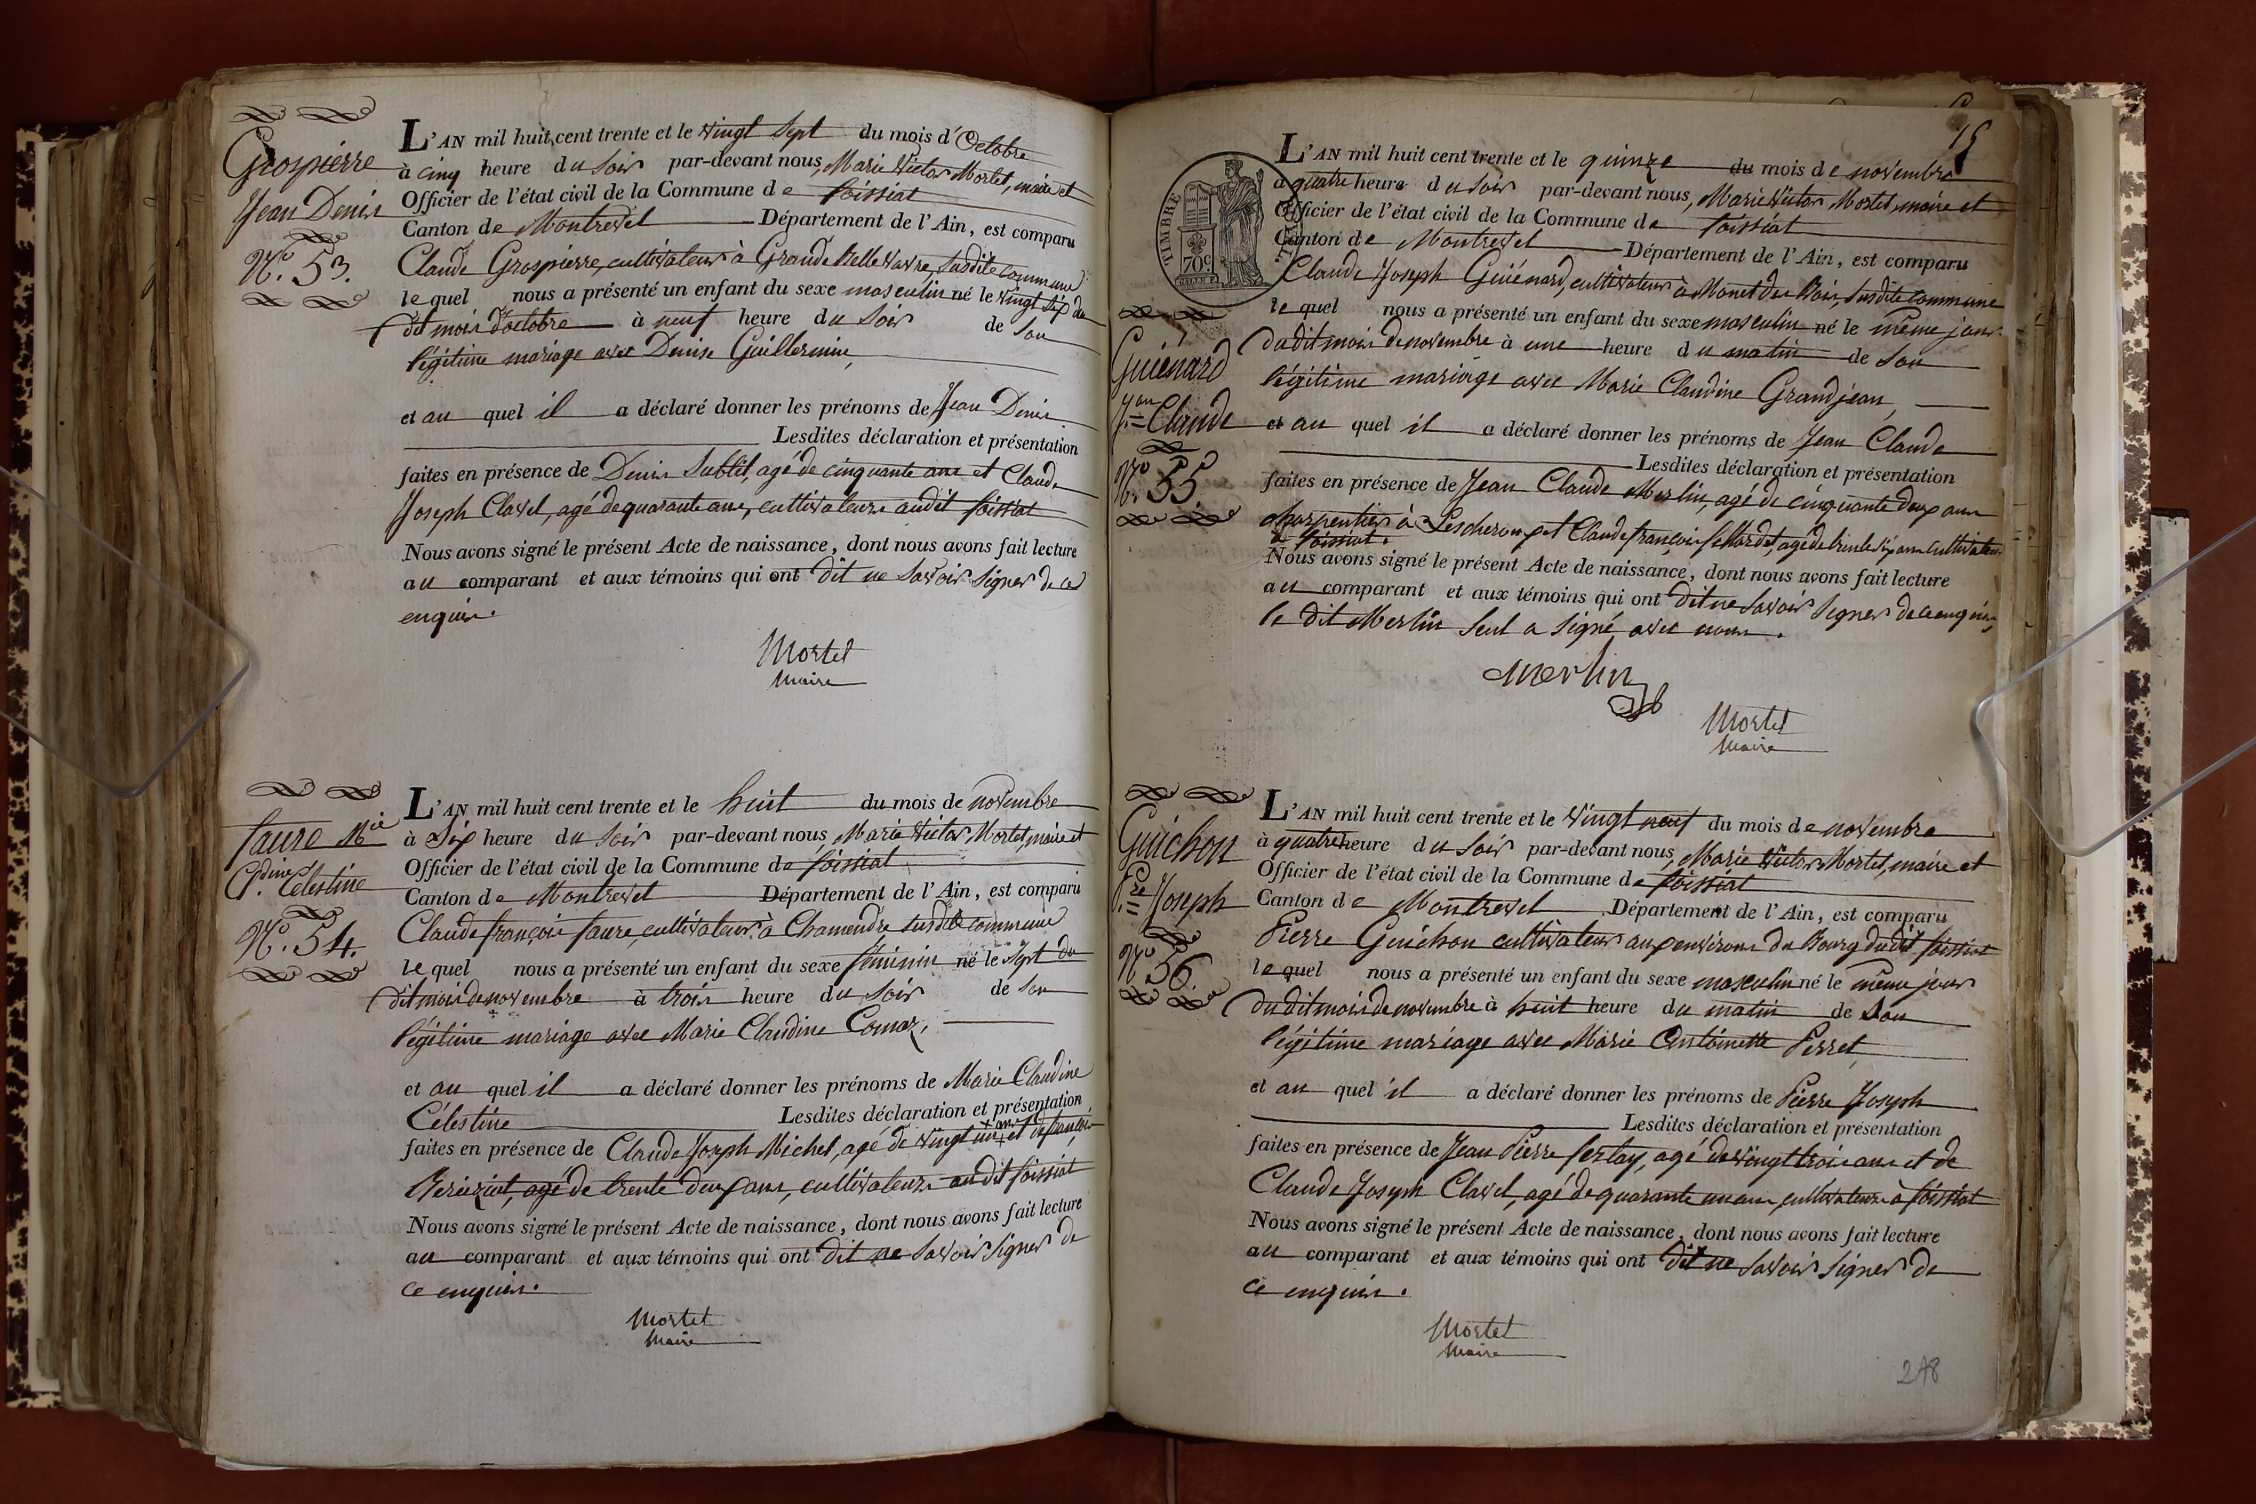 Grospierre
Jean Denis
N.° 53.
L'AN mil huit cent trente et le vingt sept du mois d'Octobre
à cinq heure du soir par-devant nous, Marie Victor Mortet, maire et
Officier de l'état civil de la Commune de foissiat
Canton de Montrevel Département de l'Ain, est comparu
Claude Grospierre, cultivateur à Grande Velle vavre, susdite commune
lequel nous a présenté un enfant du sexe masculin né le vingt six du
dit mois d'octobre à neuf heure du soir de son
légitime mariage avec Denise Guillermin,
et au quel il a déclaré donner les prénoms de Jean Denis
Lesdites déclaration et présentation
faites en présence de Denis Sublet, agé de cinquante ans et Claude
Joseph Clavel, agé de quarante ans, cultivateurs audit foissiat
Nous avons signé le présent Acte de naissance, dont nous avons fait lecture
au comparant et aux témoins qui ont dit ne savoir signer de ce
enquis.
Mortet
Maire
faure M.ie
C.dine Célestine
N.° 54.
L'AN mil huit cent trente et le huit du mois de novembre
à Six heure du soir par-devant nous Marie Victor Mortet, maire et
Officier de l'état civil de la Commune de foissiat
Canton de Montrevel Département de l'Ain, est comparu
Claude françois faure, cultivateur à Chamendre susdite commune
lequel nous a présenté un enfant du sexe féminin né le sept du
dit mois de novembre à trois heure du soir de son
légitime mariage avec Marie Claudine Comaz,
et au quel il a déclaré donner les prénoms de Marie Claudine
Célestine Lesdites déclaration et présentation
faites en présence de Claude Joseph Michel, agé de vingt un ans et de françois
Bereiziat, agé de trente deux ans, cultivateurs audit foissiat
Nous avons signé le présent Acte de naissance, dont nous avons fait lecture
au comparant et aux témoins qui ont dit ne savoir signer de
ce enquis.
Mortet
Maire
15
TIMBRE
70c
Guiénard
J.an Claude
N.° 55.
L'AN mil huit cent trente et le quinze du mois de novembre
à quatre heure du soir par-devant nous, Marie Victor Mortet, maire et
Officier de l'état civil de la Commune de foissiat
Canton de Montrevel Département de l'Ain, est comparu
Claude Joseph Guiénard, cultivateur à Monet du Bois, susdite commune
lequel nous a présenté un enfant du sexe masculin né le même jour
dudit mois de novembre à une heure du matin de son
légitime mariage avec Marie Claudine Grandjean,
et au quel il a déclaré donner les prénoms de Jean Claude
Lesdites déclaration et présentation
faites en présence de Jean Claude Merlin, agé de cinquante deux ans
charpentier à Lescheroux et Claude françois fellardet, agé de trente six ans cultivateur
à foissiat.
Nous avons signé le présent Acte de naissance, dont nous avons fait lecture
au comparant et aux témoins qui ont dit ne savoir signer de ce enquis,
le dit Merlin seul a signé avec nous.
Merlin
Mortet
Maire
Guichon
P.re Joseph
N.° 56.
L'AN mil huit cent trente et le vingt neuf du mois de novembre
à quatre heure du soir par-devant nous, Marie Victor Mortet, maire et
Officier de l'état civil de la Commune de foissiat
Canton de Montrevel Département de l'Ain, est comparu
Pierre Guichon cultivateur aux environs du Bourg dudit foissiat
lequel nous a présenté un enfant du sexe masculin né le même jour
dudit mois de novembre à huit heure du matin de son
légitime mariage avec Marie Antoinette Perret,
et au quel il a déclaré donner les prénoms de Pierre Joseph
Lesdites déclaration et présentation
faites en présence de Jean Pierre ferlay, agé de vingt trois ans et de
Claude Joseph Clavel, agé de quarante un ans, cultivateurs à foissiat
Nous avons signé le présent Acte de naissance, dont nous avons fait lecture
au comparant et aux témoins qui ont dit ne savoir signer de
ce enquis.
Mortet
Maire
248